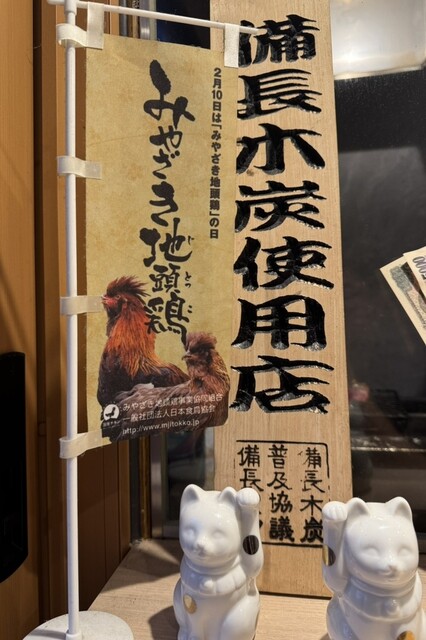 備長木炭使用店
備長木炭
普及協議
備長
2月10日は「みやざき地頭鶏」の日
みやざき地頭鶏
じとっこ
みやざき地頭鶏事業協同組合
一般社団法人日本食鳥協会
http://www.mjitokko.jp